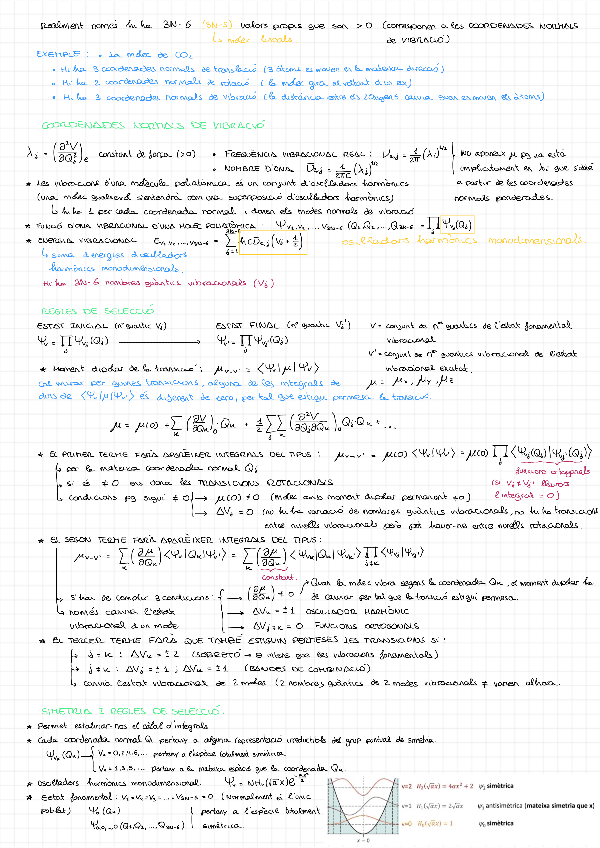 Realment només hi ha 3N-6 (3N-5) valors propis que són > 0 (corresponen a les COORDENADES NORMALS
↳ molèc. lineals. de VIBRACIÓ)
EXEMPLE: • La molèc de CO₂
• Hi ha 3 coordenades normals de translació (3 àtoms es mouen en la mateixa direcció)
• Hi ha 2 coordenades normals de rotació (la molèc gira al voltant d'un eix)
• Hi ha 3 coordenades normals de vibració (la distància entre els oxigens canvia quan es mouen els àtoms)
COORDENADES NORMALS DE VIBRACIÓ
λj = (∂²V/∂Qj²)e constant de força (>0) • FREQÜÈNCIA VIBRACIONAL REAL: νe,j = 1/2π (λj)^1/2 NO apareix μ pq ja està
• NOMBRE D'ONA: ν̃e,j = 1/2πc (λj)^1/2 implícitament en λj que s'obté
a partir de les coordenades
normals ponderades.
* Les vibracions d'una molècula poliatòmica és un conjunt d'oscil·ladors harmònics
(una molèc qualsevol s'entendrà com una superposició d'oscil·ladors harmònics)
↳ hi ha 1 per cada coordenada normal i donen els modes normals de vibració
* FUNCIÓ D'ONA VIBRACIONAL D'UNA MOLÈC. POLIATÒMICA Ψv1,v2,... v3N-6 (Q1, Q2,... Q3N-6) = ∏j Ψvj(Qj)
* ENERGIA VIBRACIONAL Gv1,v2,...,v3N-6 = Σ hcν̃e,j (vj + 1/2) oscil·ladors harmònics monodimensionals.
↳ suma d'energies d'oscil·ladors
harmònics monodimensionals.
Hi ha 3N-6 nombres quàntics vibracionals (Vj)
REGLES DE SELECCIÓ
ESTAT INICIAL (nº quàntic Vj) ESTAT FINAL (nº quàntic Vj') V = conjunt de nºs quàntics de l'estat fonamental
Ψv = ∏j Ψvj(Qj) ⟶ Ψv' = ∏j Ψvj'(Qj) vibracional
V' = conjunt de nºs quàntics vibracional de l'estat
vibracional excitat.
* Moment dipolar de la transició: μv-v' = ⟨Ψv|μ|Ψv'⟩
Cal mirar per quines transicions, alguna de les integrals de μ = μx, μy, μz
dins de ⟨Ψv|μ|Ψv'⟩ és diferent de zero, per tal que estigui permesa la transició.
μ = μ(0) + Σk (∂V/∂Qk)0 · Qk + 1/2 ΣΣ (∂²V/∂Qj∂Qk)0 Qj·Qk + ...
* EL PRIMER TERME FARÀ APARÈIXER INTEGRALS DEL TIPUS: μv-v' = μ(0) ⟨Ψv|Ψv'⟩ = μ(0) ∏j ⟨Ψvj(Qj)|Ψvj'(Qj)⟩
↳ per la mateixa coordenada normal Qj
↳ si és ≠ 0 ens dona les TRANSICIONS ROTACIONALS
(si Vj ≠ Vj', llavors
l'integral = 0)
↳ condicions pq sigui ≠ 0 → μ(0) ≠ 0 (molèc amb moment dipolar permanent ≠ 0)
→ ΔVj = 0 (no hi ha variació de nombres quàntics vibracionals, no hi ha transicions
entre nivells vibracionals però pot haver-ne entre nivells rotacionals.
* EL SEGON TERME FARÀ APARÈIXER INTEGRALS DEL TIPUS:
μv-v' = Σk (∂μ/∂Qk) ⟨Ψv|Qk|Ψv'⟩ = Σk (∂μ/∂Qk) ⟨Ψvk|Qk|Ψvk'⟩ ∏j≠k ⟨Ψvj|Ψvj'⟩
constant.
Quan la molèc vibra segons la coordenada Qk, el moment dipolar ha
de canviar per tal que la transició estigui permesa.
↳ s'han de complir 3 condicions: → (∂μ/∂Qk)0 ≠ 0
↳ només canvia l'estat → ΔVk = ±1 OSCIL·LADOR HARMÒNIC
vibracional d'un mode → ΔVj≠k = 0 FUNCIONS ORTOGONALS
* EL TERCER TERME FARÀ QUE TAMBÉ ESTIGUIN PERMESES LES TRANSICIONS SI:
↳ j = k : ΔVk = ±2
↳ j ≠ k : ΔVj = ±1 ; ΔVk = ±1 (BANDES DE COMBINACIÓ)
↳ canvia l'estat vibracional de 2 modes (2 nombres quàntics de 2 modes vibracionals ≠ varien alhora.
SIMETRIA I REGLES DE SELECCIÓ.
* Permet estalviar-nos el càlcul d'integrals
* Cada coordenada normal Qk pertany a alguna representació irreductible del grup puntual de simetria.
Ψvk(Qk) Vk = 0,2,4,6,... pertany a l'espècie totalment simètrica.
Vk = 1,3,5,... pertany a la mateixa espècie que la coordenada Qk.
* Oscil·ladors harmònics monodimensional.
* Estat fonamental: V1 = V2 = V3 = ... = V3N-6 = 0 (Normalment és l'únic
poblat) Ψ0(Qk) pertany a l'espècie totalment
Ψ0,0,...0 (Q1,Q2,...,Q3N-6) simètrica.
v=2 H₂(√αx) = 4αx² + 2 ψ₂ simètrica
v=1 H₁(√αx) = 2√αx ψ₁ antisimètrica (mateixa simetria que x)
v=0 H₀(√αx) = 1 ψ₀ simètrica
x = 0